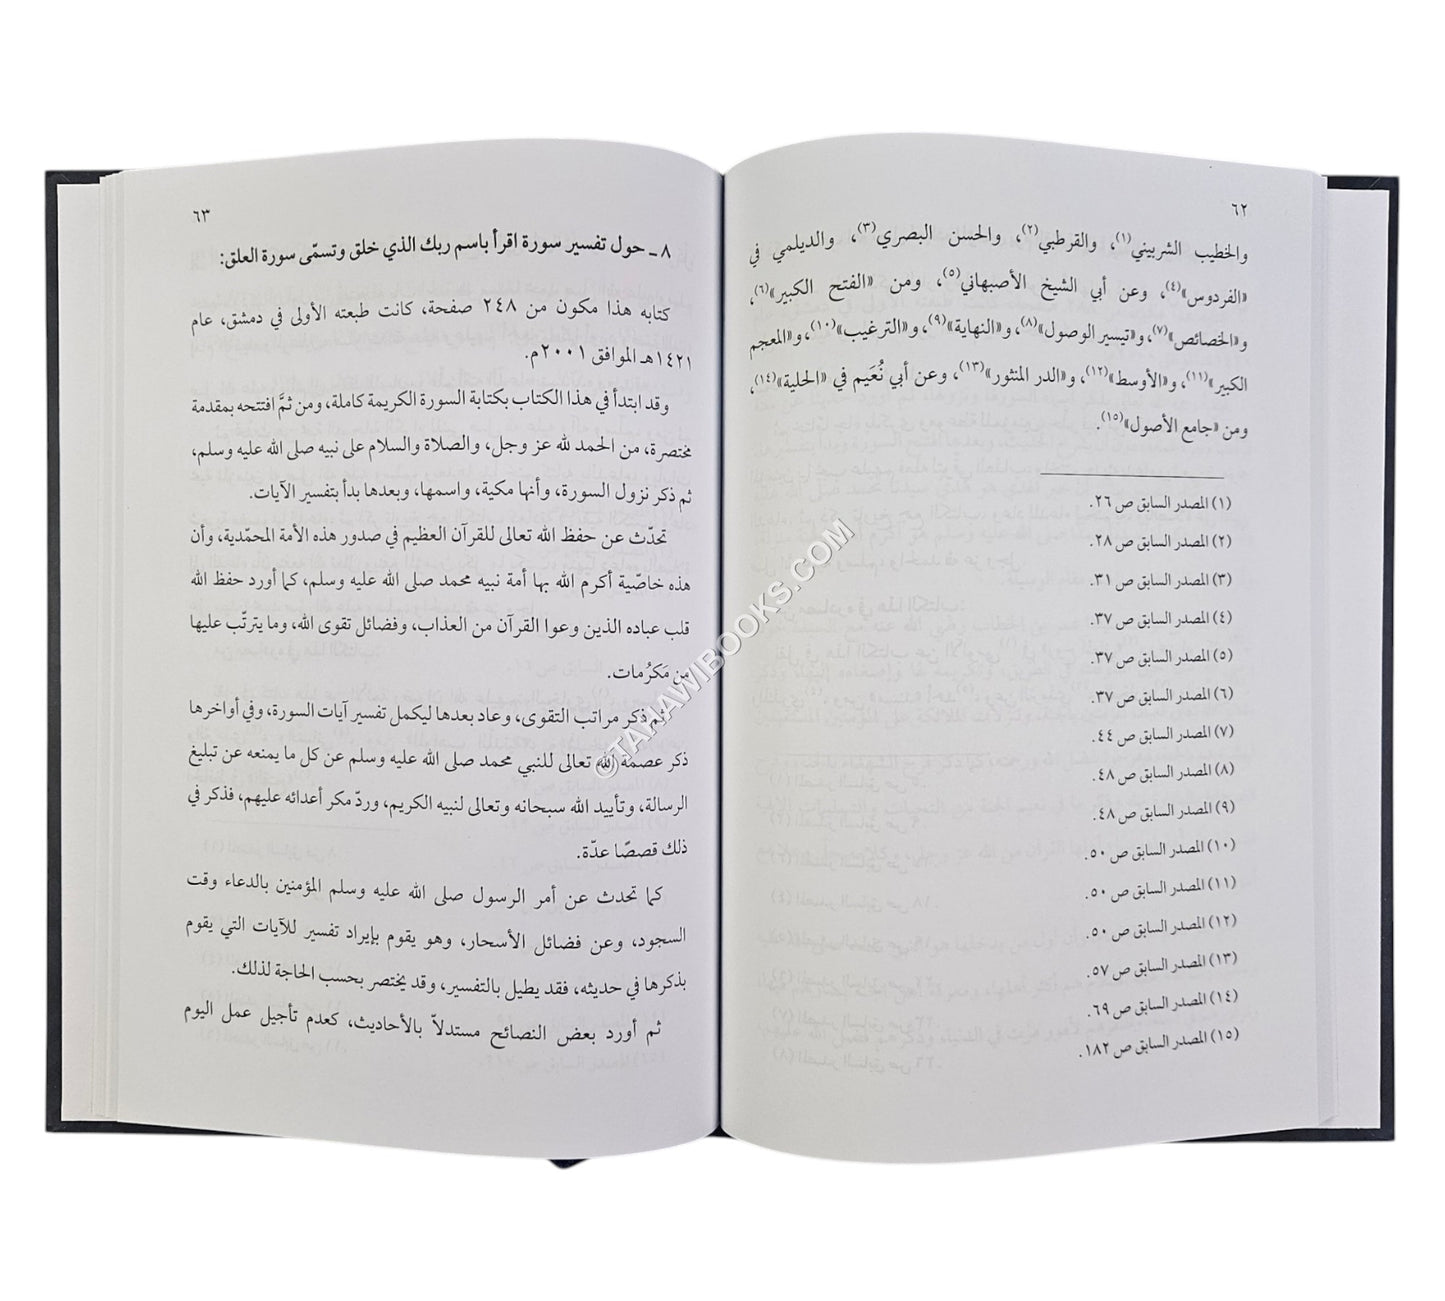 ٦٢
والخطيب الشربيني(١)، والقرطبي(٢)، والحسن البصري(٣)، والديلمي في
«الفردوس»(٤)، وعن أبي الشيخ الأصبهاني(٥)، ومن «الفتح الكبير»(٦)،
و«الخصائص»(٧)، و«تيسير الوصول»(٨)، و«النهاية»(٩)، و«الترغيب»(١٠)، و«المعجم
الكبير»(١١)، و«الأوسط»(١٢)، و«الدر المنثور»(١٣)، وعن أبي نُعَيم في «الحلية»(١٤)،
ومن «جامع الأصول»(١٥).
(١) المصدر السابق ص ٢٦.
(٢) المصدر السابق ص ٢٨.
(٣) المصدر السابق ص ٣١.
(٤) المصدر السابق ص ٣٧.
(٥) المصدر السابق ص ٣٧.
(٦) المصدر السابق ص ٣٧.
(٧) المصدر السابق ص ٤٤.
(٨) المصدر السابق ص ٤٨.
(٩) المصدر السابق ص ٤٨.
(١٠) المصدر السابق ص ٥٠.
(١١) المصدر السابق ص ٥٠.
(١٢) المصدر السابق ص ٥٠.
(١٣) المصدر السابق ص ٥٧.
(١٤) المصدر السابق ص ٦٩.
(١٥) المصدر السابق ص ١٨٢.
٦٣
٨ ـ حول تفسير سورة اقرأ باسم ربك الذي خلق وتسمّى سورة العلق:
كتابه هذا مكون من ٢٤٨ صفحة، كانت طبعته الأولى في دمشق، عام
١٤٢١هـ الموافق ٢٠٠١م.
وقد ابتدأ في هذا الكتاب بكتابة السورة الكريمة كاملة، ومن ثمَّ افتتحه بمقدمة
مختصرة، من الحمد لله عز وجل، والصلاة والسلام على نبيه صلى الله عليه وسلم،
ثم ذكر نزول السورة، وأنها مكية، واسمها، وبعدها بدأ بتفسير الآيات.
تحدّث عن حفظ الله تعالى للقرآن العظيم في صدور هذه الأمة المحمّدية، وأن
هذه خاصّية أكرم الله بها أمة نبيه محمد صلى الله عليه وسلم، كما أورد حفظ الله
قلب عباده الذين وعوا القرآن من العذاب، وفضائل تقوى الله، وما يترتّب عليها
من مَكرُمات.
ثم ذكر مراتب التقوى، وعاد بعدها ليكمل تفسير آيات السورة، وفي أواخرها
ذكر عصمة الله تعالى للنبي محمد صلى الله عليه وسلم عن كل ما يمنعه عن تبليغ
الرسالة، وتأييد الله سبحانه وتعالى لنبيه الكريم، وردّ مكر أعدائه عليهم، فذكر في
ذلك قصصًا عدّة.
كما تحدث عن أمر الرسول صلى الله عليه وسلم المؤمنين بالدعاء وقت
السجود، وعن فضائل الأسحار، وهو يقوم بإيراد تفسير للآيات التي يقوم
بذكرها في حديثه، فقد يطيل بالتفسير، وقد يختصر بحسب الحاجة لذلك.
ثم أورد بعض النصائح مستدلاّ بالأحاديث، كعدم تأجيل عمل اليوم
©TAHAWIBOOKS.COM